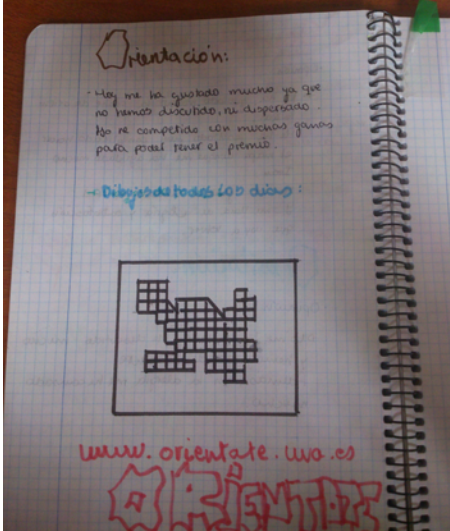 Orientación:
- Hoy me ha gustado mucho ya que
no hemos discutido, ni dispersado.
Yo he competido con muchas ganas
para poder tener el premio.
→ Dibujos de todos los días:
www.orientate.uva.es
ORIENTATE